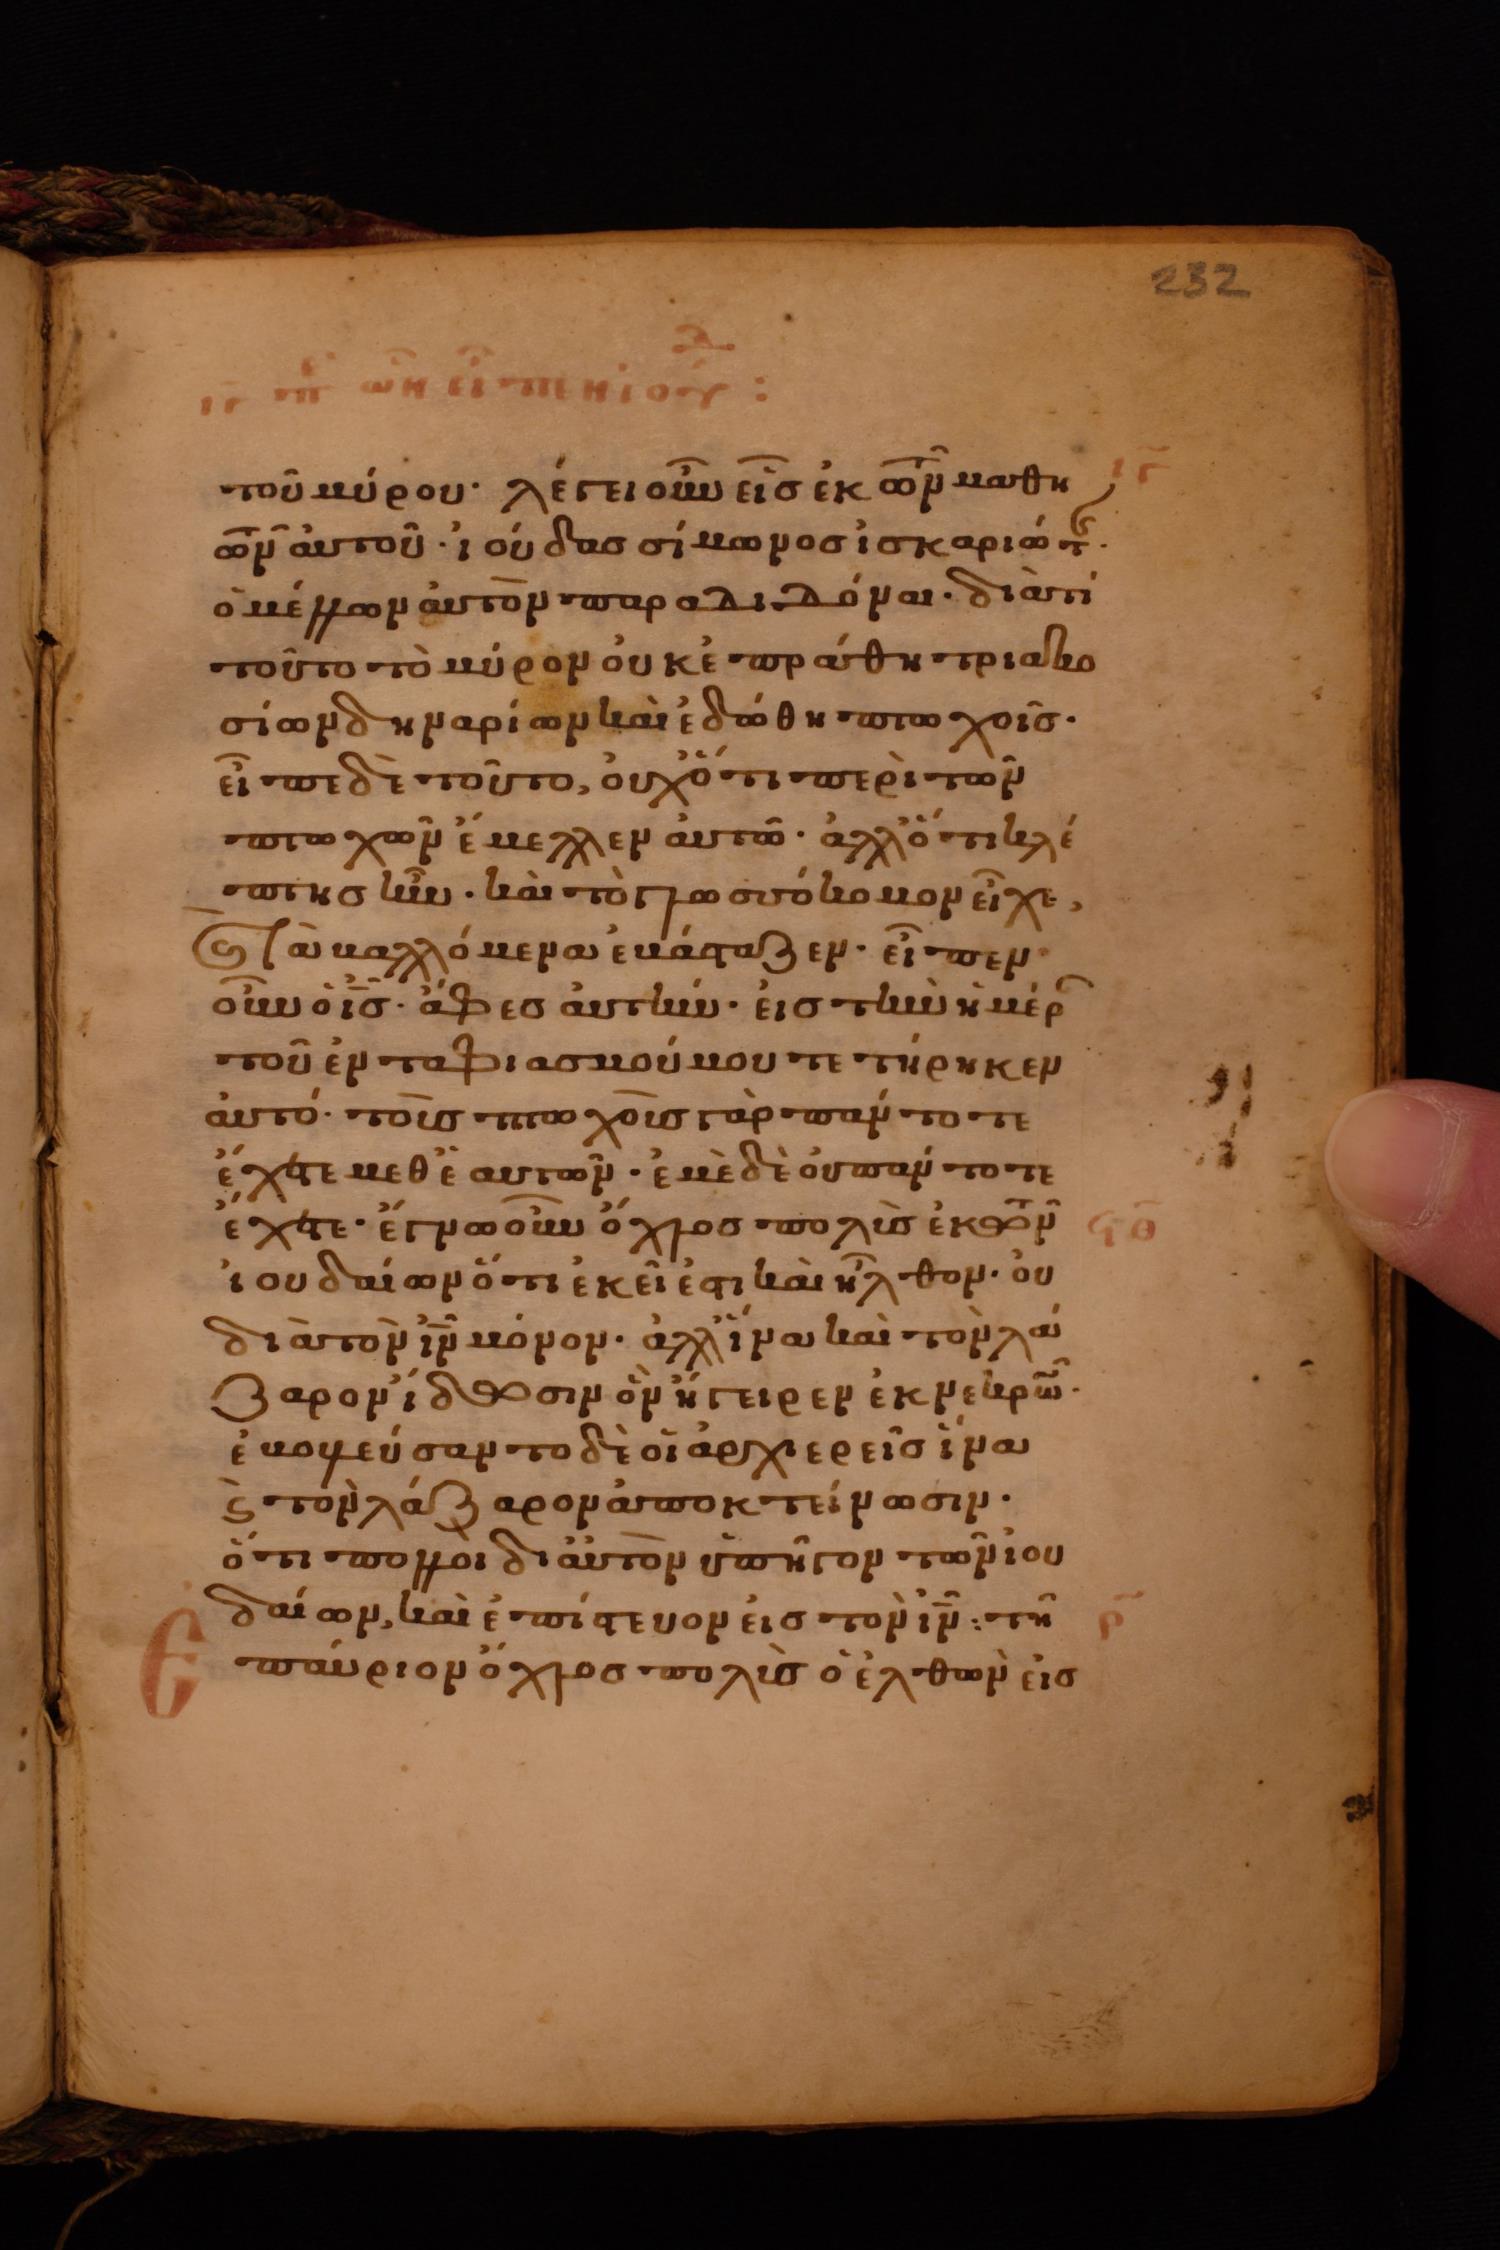 232
τοῦ μύρου· λέγει οὖν εἷς ἐκ τῶν μαθη
τῶν ἀυτοῦ· ἰούδας σίμωνος ἰσκαριώτ.
ὁ μέλλων ἀυτὸν παραδιδόναι· διὰτί
τοῦτο τὸ μύρον ὀυκ ἐπράθη τριακο
σίων δηναρίων καὶ ἐδώθη πτωχοῖς·
εἶπε δὲ τοῦτο, ὀυχ ὅτι περὶ τῶν
πτωχῶν ἔμελλεν ἀυτῶ· ἀλλ ὅτι κλέ
πτης ἦν· καὶ τὸ γλωσσόκομον εἶχε,
καὶ τὰ βαλλόμενα ἐβάσταζεν· εἶπεν
οὖν ὁ ις· ἄφες ἀυτὴν· ἐις τὴν ἡμέρ
τοῦ ἐνταφιασμού μου τετήρηκεν
ἀυτό· τοῖς πτωχοῖς γὰρ πάντοτε
ἔχετε μεθ ἑαυτῶν· ἐμὲ δὲ ὀυ πάντοτε
ἔχετε· ἔγνω οὖν ὄχλος πολὺς ἐκ τῶν
ϟθ
ἰουδαίων ὅτι ἐκεῖ ἐστι καὶ ἦλθον· ὀυ
διὰ τὸν ιν μόνον· ἀλλ ἵνα καὶ τὸν λά
ζαρον ἴδωσιν ὃν ἤγειρεν ἐκ νεκρῶ·
ἐβουλεύσαντο δὲ οἱ ἀρχιερεῖς ἵνα
ϗ τὸν λάζαρον ἀποκτείνωσιν·
ὅτι πολλοὶ δι ἀυτὸν ὑπῆγον τῶν ἰου
δαίων, καὶ ἐπίστευον ἐις τὸν ιν: τῆ
ρ
Ε παύριον ὄχλος πολὺς ὁ ἐλθὼν ἐις